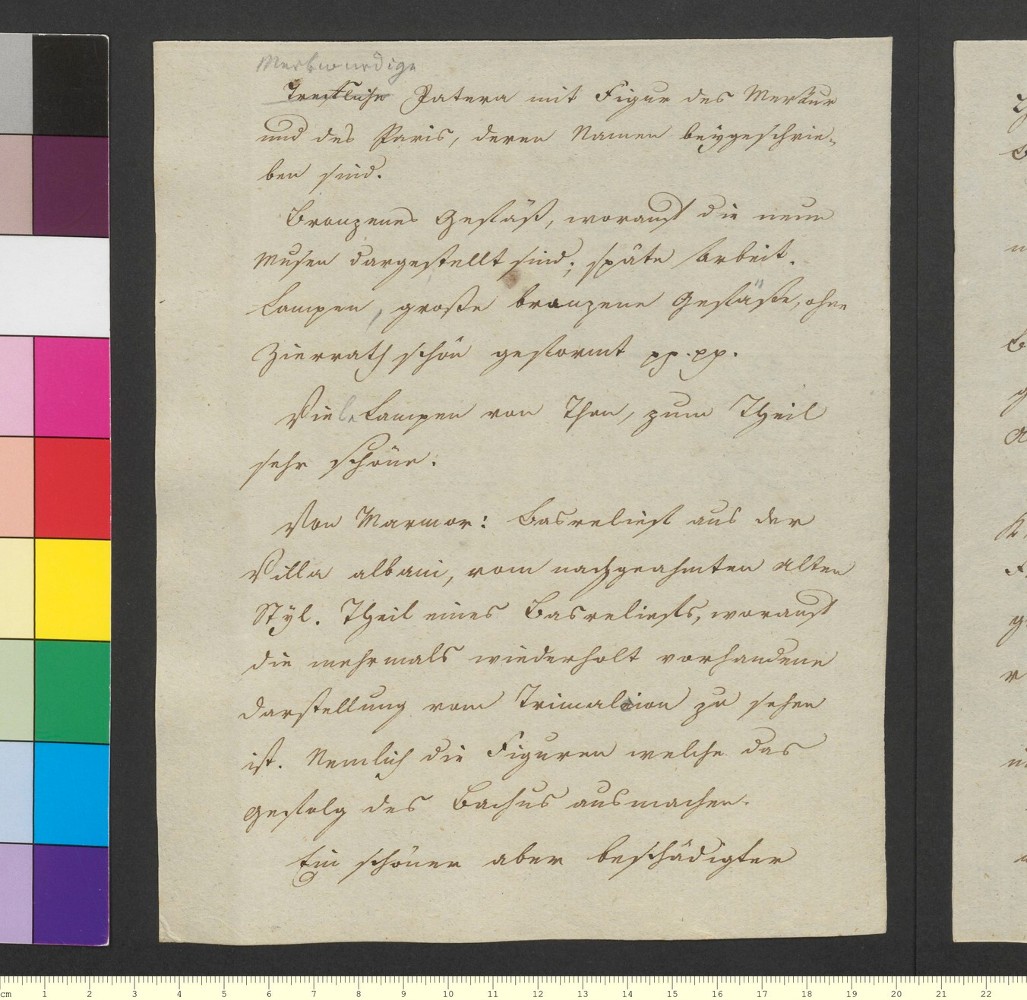 Merkwürdige
Trefliche Patera mit Figur des Merkur
und des Paris, deren Namen beygeschrie-
ben sind.
Bronzenes Gefäß, worauf die neun
Musen dargestellt sind; späte Arbeit.
Lampen, große bronzene Gefäße, ohne
Zierrath schön geformt pp. pp.
Viele Lampen von Thon, zum Theil
sehr schöne.
Von Marmor: Basrelief aus der
Villa Albani, vom nachgeahmten Alten
Styl. Theil eines Basreliefs, worauf
die mehrmals wiederholt vorhandene
Darstellung vom Trimalcion zu sehen
ist. Nemlich die Figuren welche das
Gefolg des Bachus ausmachen.
Ein schöner aber beschädigter
cm 1 2 3 4 5 6 7 8 9 10 11 12 13 14 15 16 17 18 19 20 21 22